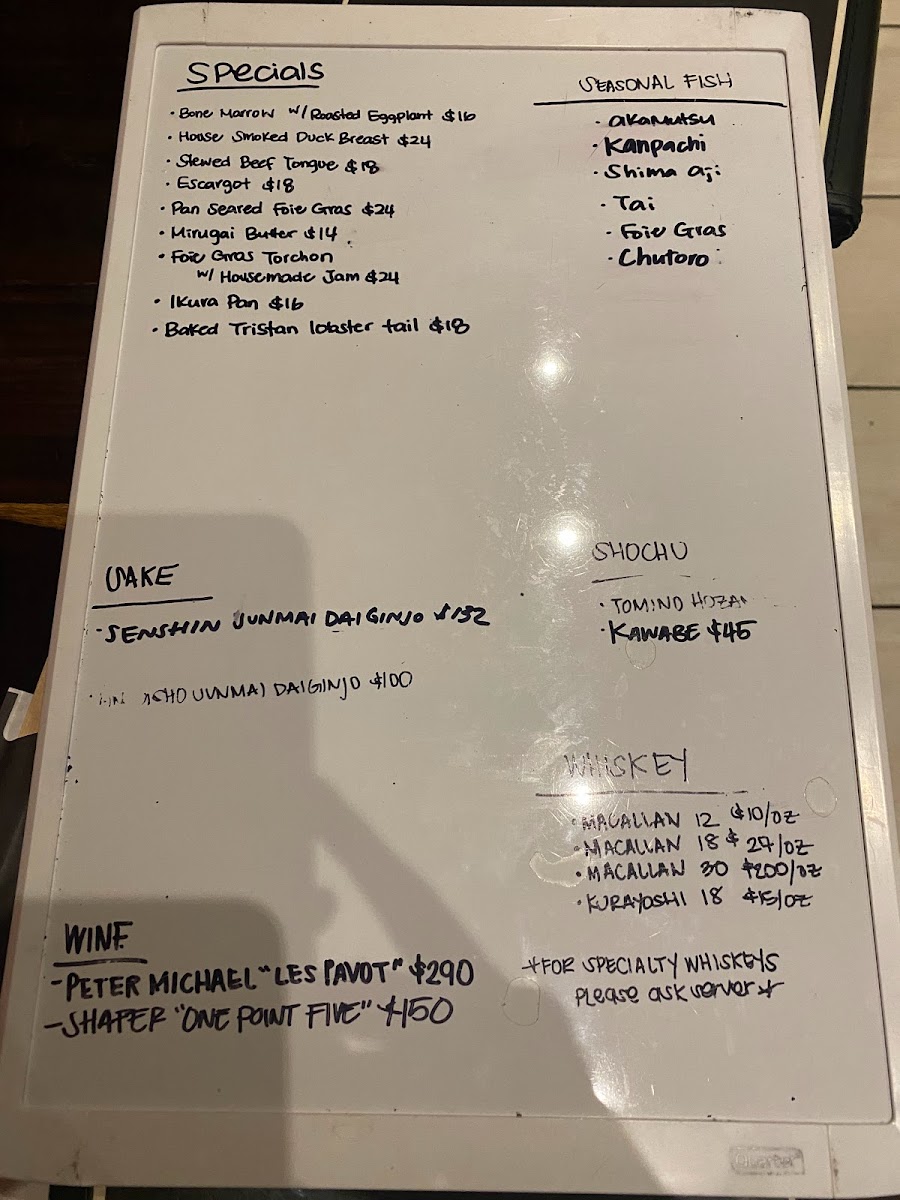 Specials
• Bone Marrow w/ Roasted Eggplant $16
• House Smoked Duck Breast $24
• Stewed Beef Tongue $18
• Escargot $18
• Pan Seared Foie Gras $24
• Mirugai Butter $14
• Foie Gras Torchon
w/ Housemade Jam $24
• Ikura Pan $16
• Baked Tristan lobster tail $18
SEASONAL FISH
• akamutsu
• Kanpachi
• Shima aji
• Tai
• Foie Gras
• Chutoro
SAKE
• SENSHIN JUNMAI DAIGINJO $132
JUNMAI DAIGINJO $100
SHOCHU
• TOMINO HOZAN
• KAWABE $45
WHISKEY
• MACALLAN 12 $10/OZ
• MACALLAN 18 $27/OZ
• MACALLAN 30 $200/OZ
• KURAYOSHI 18 $15/OZ
*FOR SPECIALTY WHISKEYS
Please ask server*
WINE
- PETER MICHAEL "LES PAVOT" $290
- SHAFER "ONE POINT FIVE" $150
Quartet